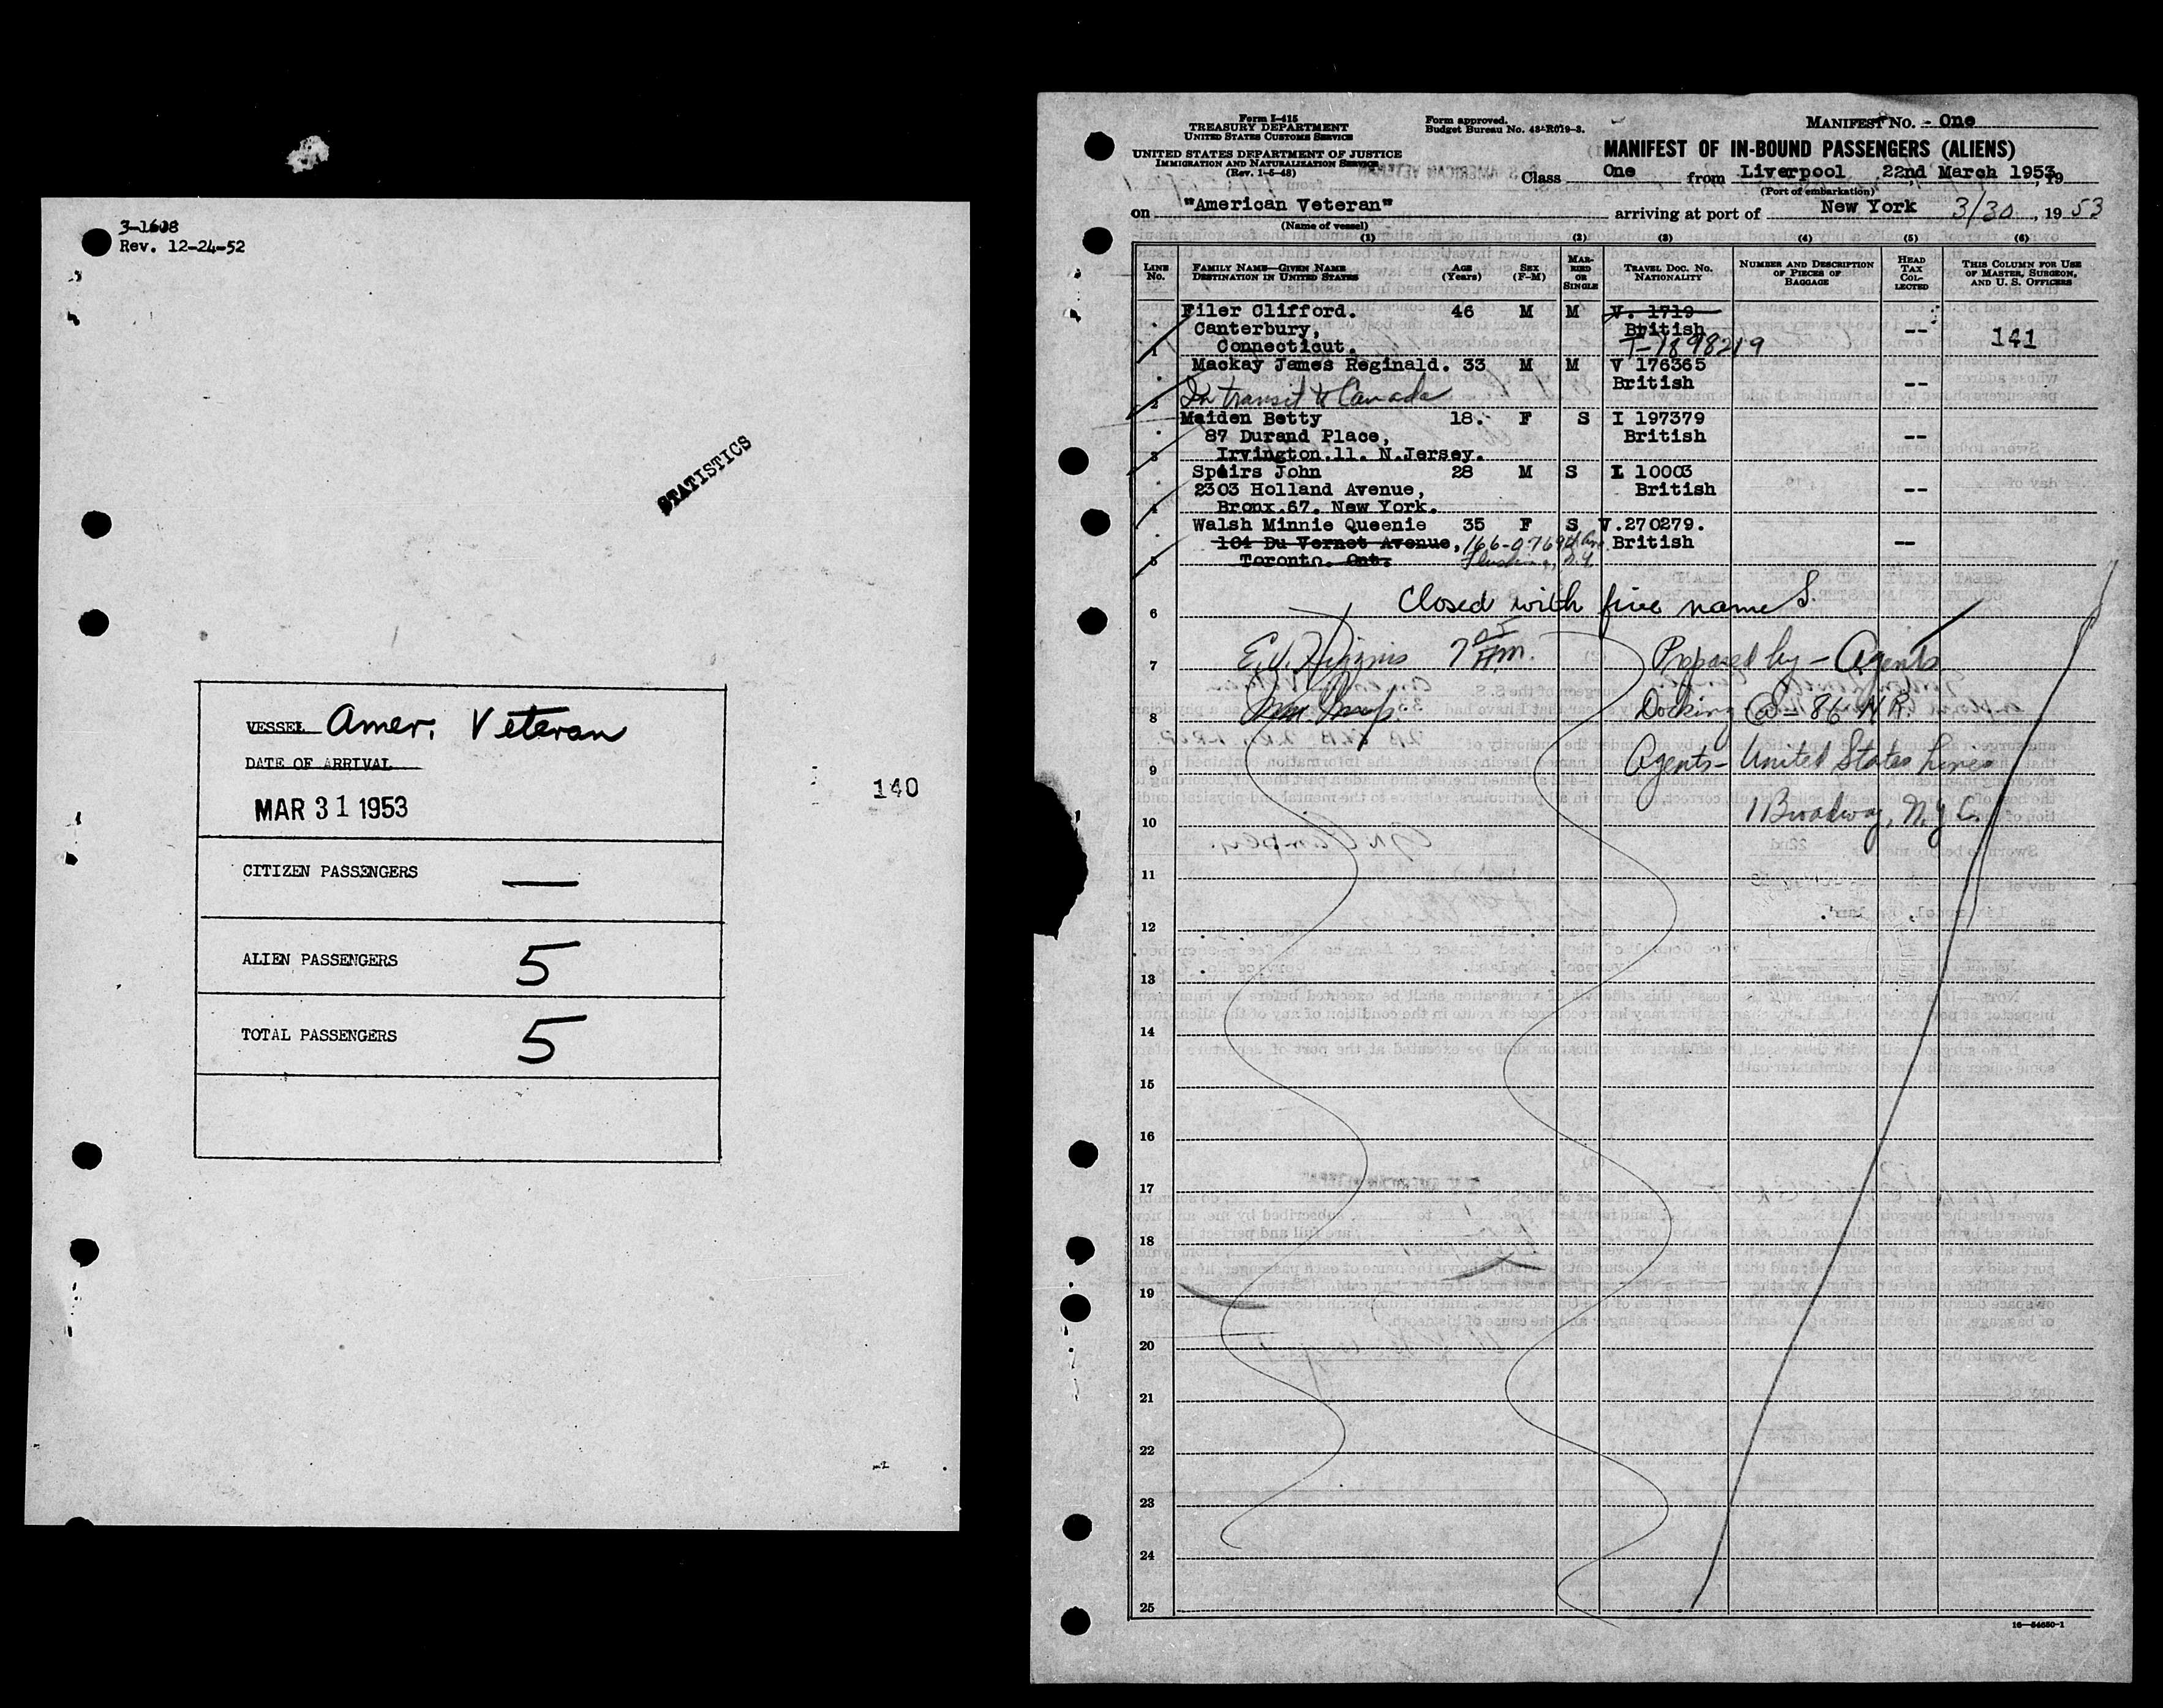 3-1608
Rev. 12-24-52
STATISTICS
VESSEL Amer. Veteran
DATE OF ARRIVAL
MAR 31 1953
140
CITIZEN PASSENGERS —
ALIEN PASSENGERS 5
TOTAL PASSENGERS 5
Form I-415
TREASURY DEPARTMENT
UNITED STATES CUSTOMS SERVICE
UNITED STATES DEPARTMENT OF JUSTICE
IMMIGRATION AND NATURALIZATION SERVICE
(Rev. 1-5-48)
Form approved.
Budget Bureau No. 43-R019-3.
MANIFEST NO. - One
MANIFEST OF IN-BOUND PASSENGERS (ALIENS)
Class One from Liverpool 22nd March 1953, 19
(Port of embarkation)
on "American Veteran" arriving at port of New York 3/30, 1953
(Name of vessel)
(1) (2) (3) (4) (5) (6)
LINE No. FAMILY NAME—GIVEN NAME DESTINATION IN UNITED STATES AGE (Years) SEX (F-M) MARRIED OR SINGLE TRAVEL DOC. NO. NATIONALITY NUMBER AND DESCRIPTION OF PIECES OF BAGGAGE HEAD TAX COLLECTED THIS COLUMN FOR USE OF MASTER, SURGEON, AND U. S. OFFICERS
Filer Clifford. 46 M M V. 1719
Canterbury, British -- 141
1 Connecticut. T-1898219
Mackay James Reginald. 33 M M V 176365
British --
2 In transit to Canada
Maiden Betty 18. F S I 197379
87 Durand Place, British --
3 Irvington.11. N.Jersey.
Speirs John 28 M S I 10003
2303 Holland Avenue, British --
4 Bronx.67. New York.
Walsh Minnie Queenie 35 F S V.270279.
104 Du Vernet Avenue, 166-07 69th Ave British --
5 Toronto. Ont. Flushing, N.Y.
6 Closed with five names.
7 E.V. Higgins 7 05 AM. Prepared by - Agents
8 Docking @ - 86 N.R.
9 Agents - United States Lines
10 1 Broadway, N.Y.C.
11
12
13
14
15
16
17
18
19
20
21
22
23
24
25
16—54650-1